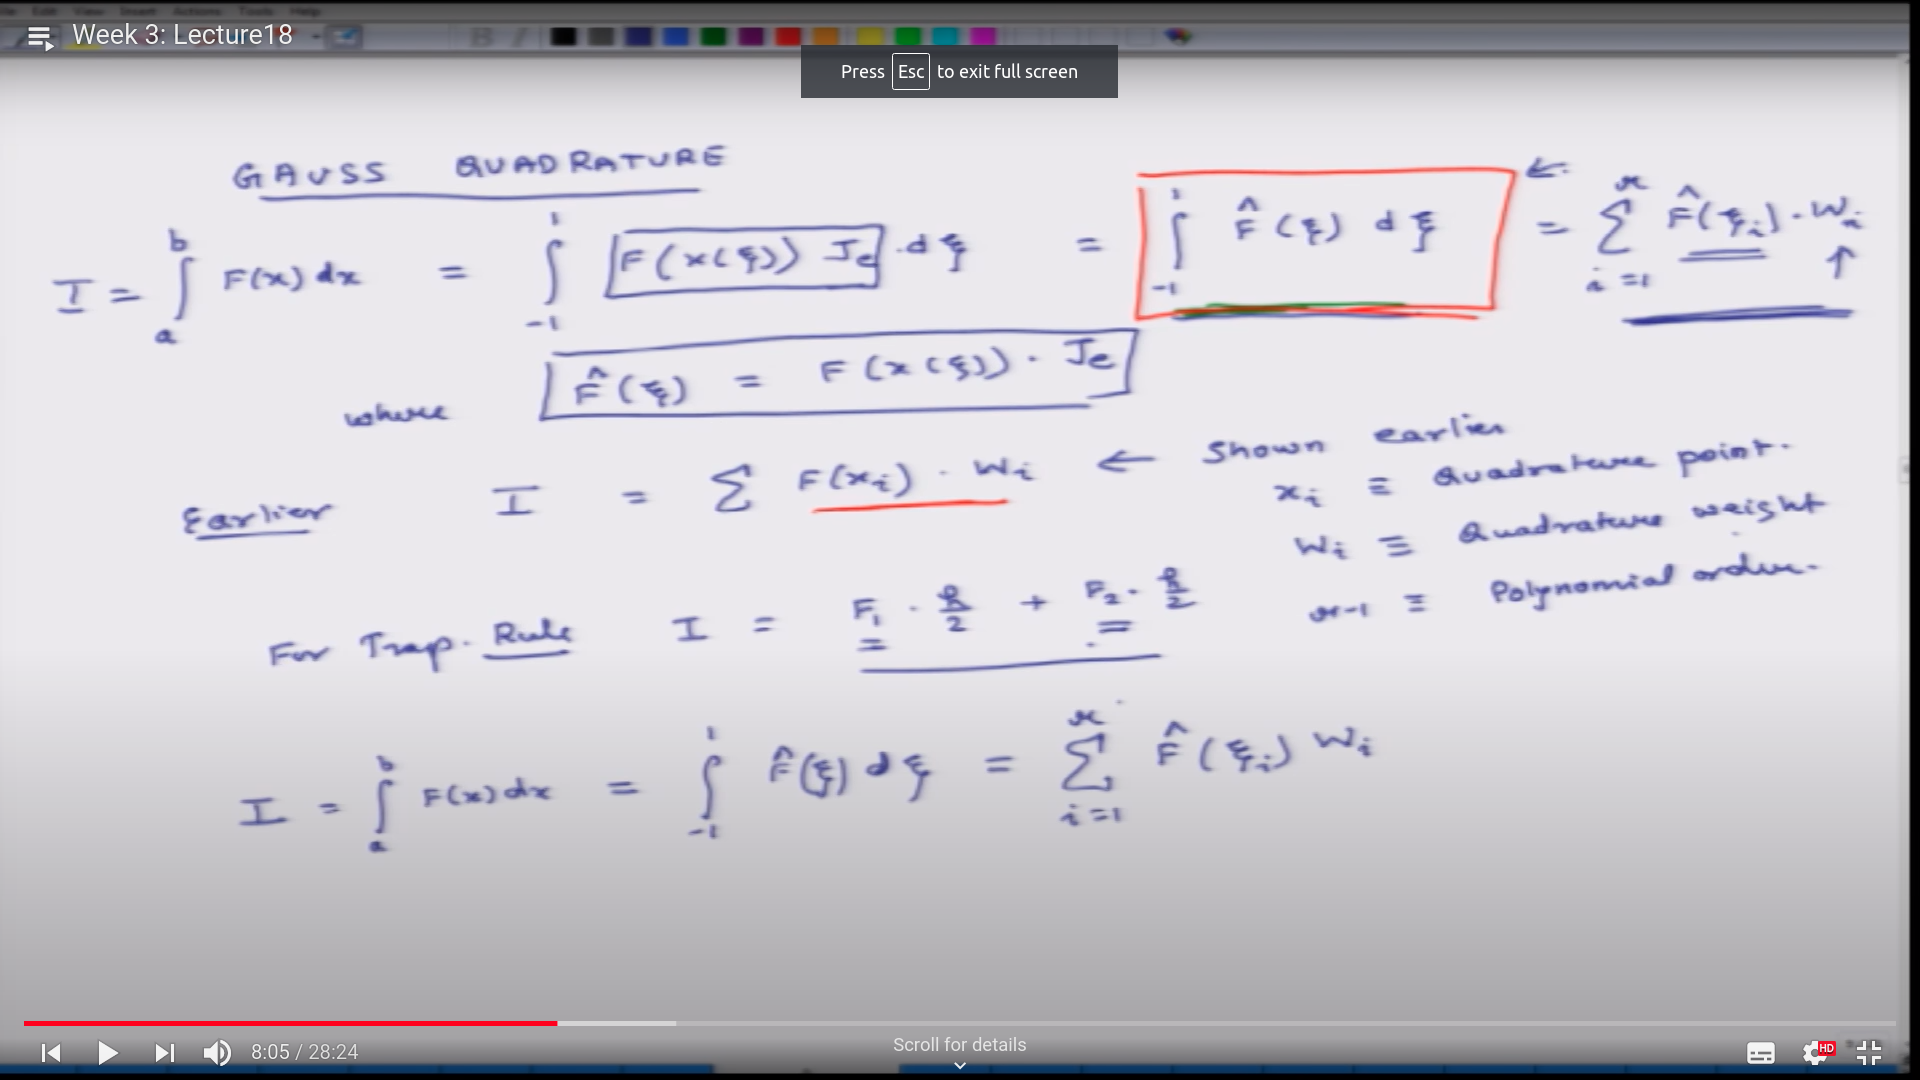 File Edit View Insert Actions Tools Help
Week 3: Lecture18
B I
Press Esc to exit full screen
GAUSS QUADRATURE
I = ∫_a^b F(x) dx = ∫_{-1}^1 F(x(ξ)) Je · dξ = ∫_{-1}^1 F̂(ξ) dξ = Σ_{i=1}^r F̂(ξi) · Wi
where F̂(ξ) = F(x(ξ)) · Je
Earlier I = Σ F(xi) · Wi ← Shown earlier
xi ≡ Quadrature point.
Wi ≡ Quadrature weight
r-1 ≡ Polynomial order.
For Trap. Rule I = F1 · h/2 + F2 · h/2
I = ∫_a^b F(x) dx = ∫_{-1}^1 F̂(ξ) dξ = Σ_{i=1}^r F̂(ξi) Wi
8:05 / 28:24
Scroll for details
HD